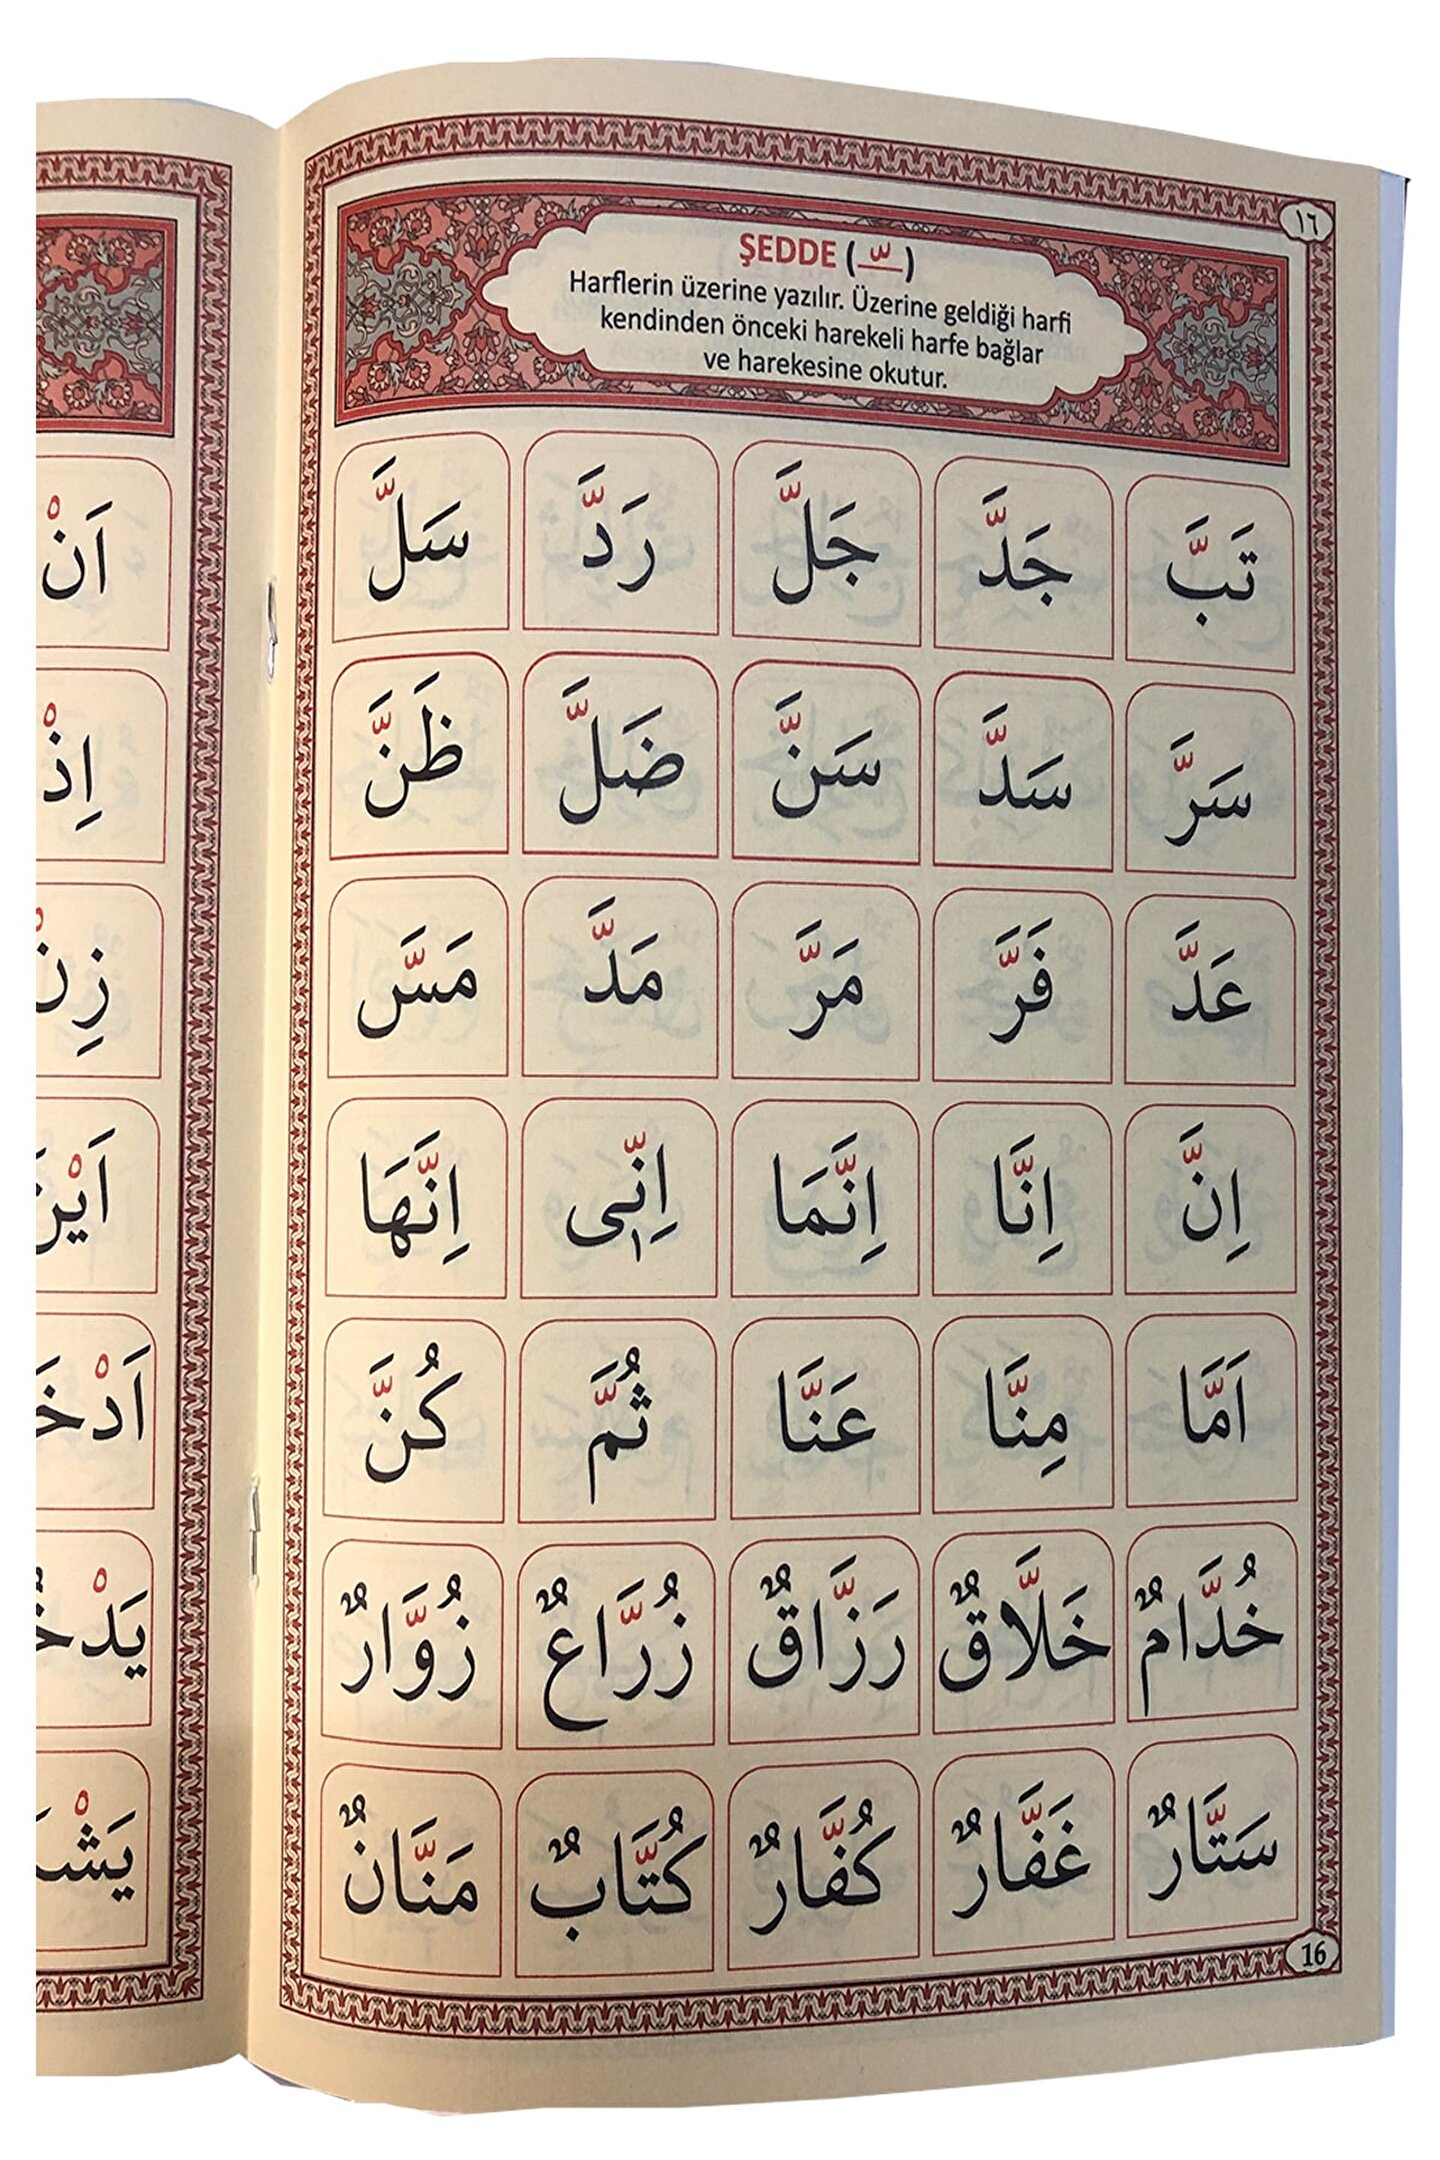 ١٦
ŞEDDE (ـّـ)
Harflerin üzerine yazılır. Üzerine geldiği harfi
kendinden önceki harekeli harfe bağlar
ve harekesine okutur.
تَبَّ جَدَّ جَلَّ رَدَّ سَلَّ
سَرَّ سَدَّ سَنَّ ضَلَّ ظَنَّ
عَدَّ فَرَّ مَرَّ مَدَّ مَسَّ
اِنَّ اِنَّا اِنَّمَا اِنّ۪ى اِنَّهَا
اَمَّا مِنَّا عَنَّا ثُمَّ كُنَّ
خُدَّامٌ خَلَّاقٌ رَزَّاقٌ زُرَّاعٌ زُوَّارٌ
سَتَّارٌ غَفَّارٌ كُفَّارٌ كُتَّابٌ مَنَّانٌ
16
اَنْ
اِذْ
زِنْ